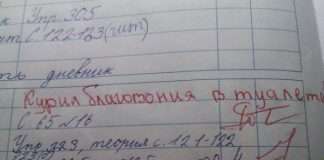 к Упр. 305
С 122-123 (чит)
ть дневник
Курил благовония в туалете
С 65 №16
Упр 323, теория с. 121-122